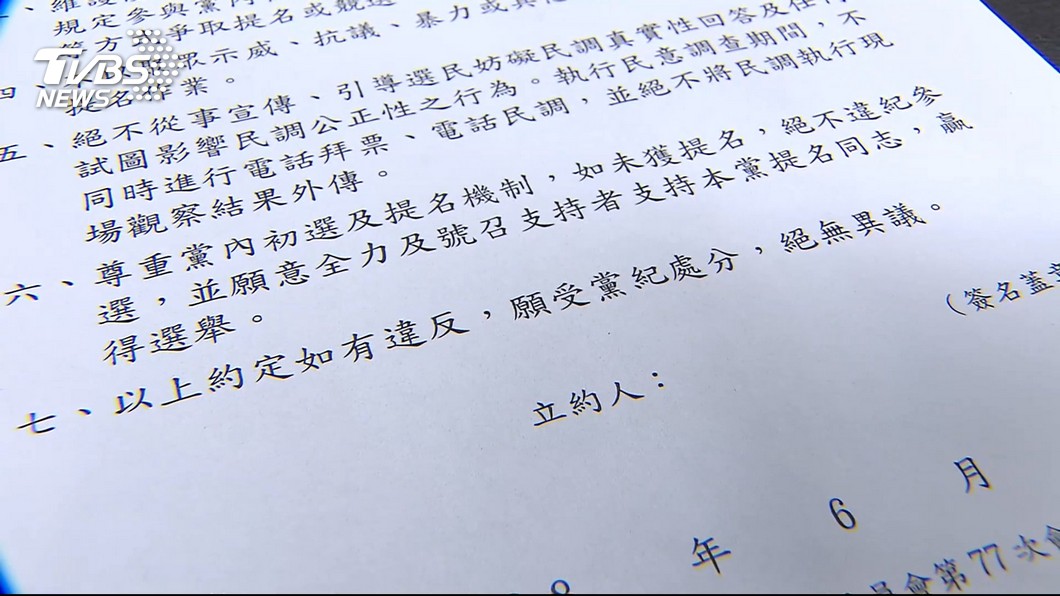 TVBS
NEWS
規定參與黨內
等方式爭取提名或競選
眾示威、抗議、暴力或
四、
提名作業。
五、絕不從事宣傳、引導選民妨礙民調真實性回答及任何
試圖影響民調公正性之行為。執行民意調查期間,不
同時進行電話拜票、電話民調,並絕不將民調執行現
場觀察結果外傳。
六、尊重黨內初選及提名機制,如未獲提名,絕不違紀參
選,並願意全力及號召支持者支持本黨提名同志,贏
得選舉。
七、以上約定如有違反,願受黨紀處分,絕無異議。
(簽名蓋章
立約人:
年 6 月
員會第77次會